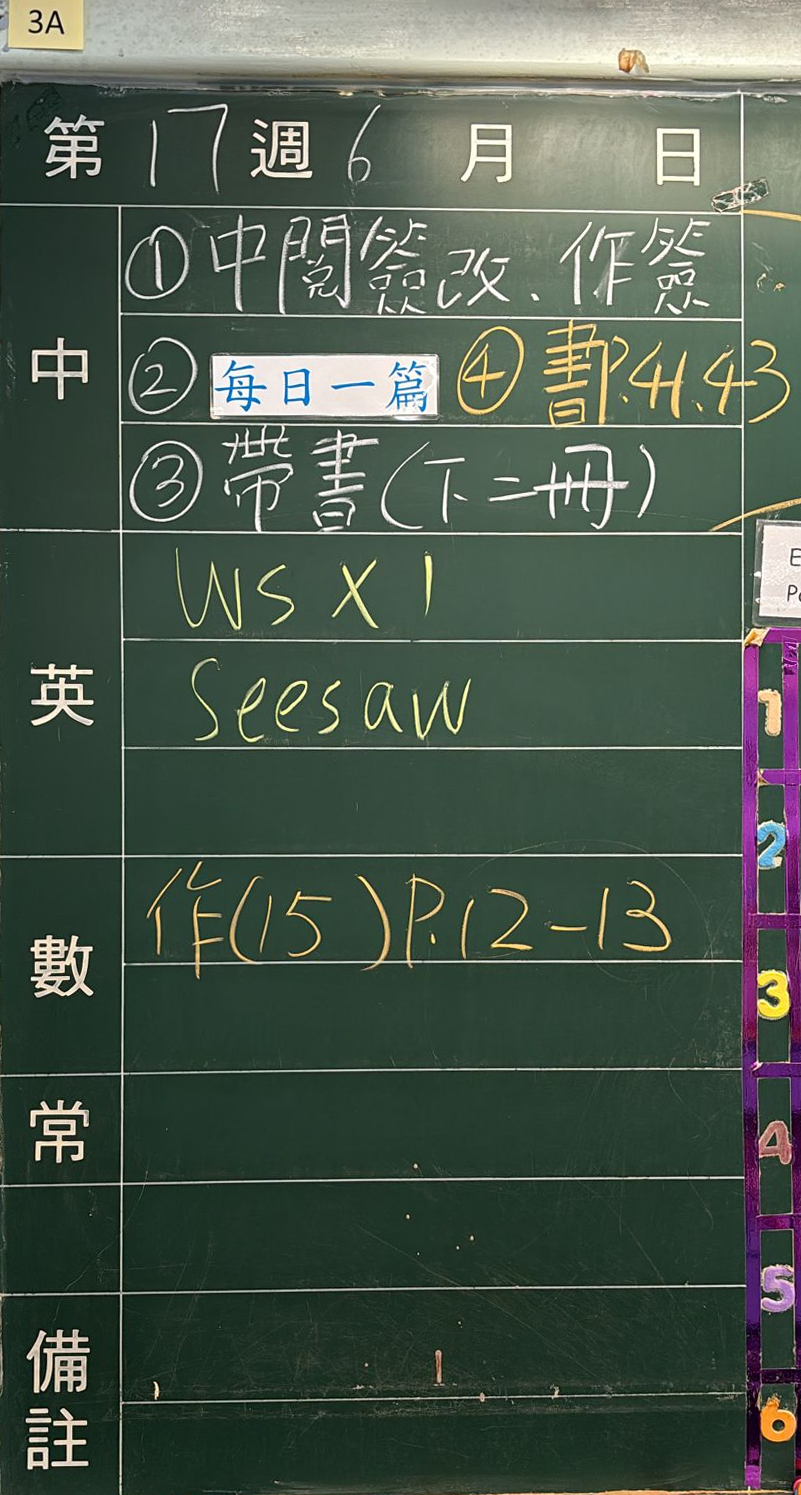 3A
第17週6月 日
中
①中閱簽改、作簽
②每日一篇 ④書P.41.43
③帶書(下二冊)
英
WS X 1
Seesaw
數
作(15)P.12-13
常
備註
1
2
3
4
5
6